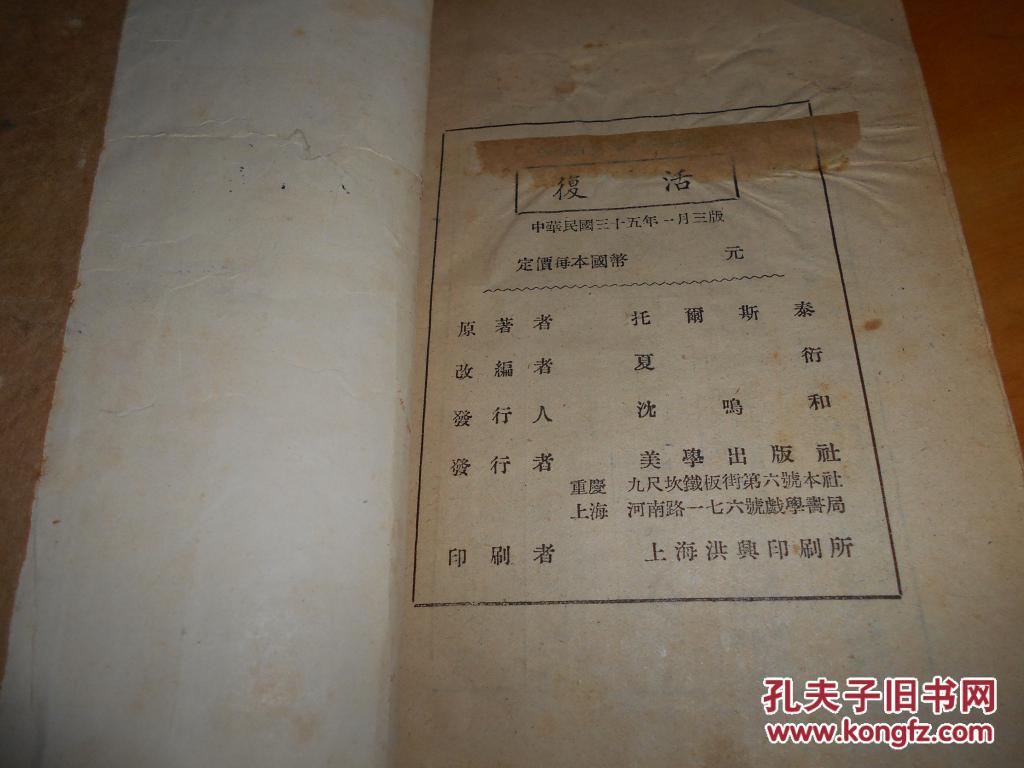 復活
中華民國三十五年一月三版
定價每本國幣 元
原著者 托爾斯泰
改編者 夏衍
發行人 沈鳴和
發行者 美學出版社
重慶 九尺坎鐵板街第六號本社
上海 河南路一七六號戲學書局
印刷者 上海洪興印刷所
孔夫子旧书网
www.kongfz.com